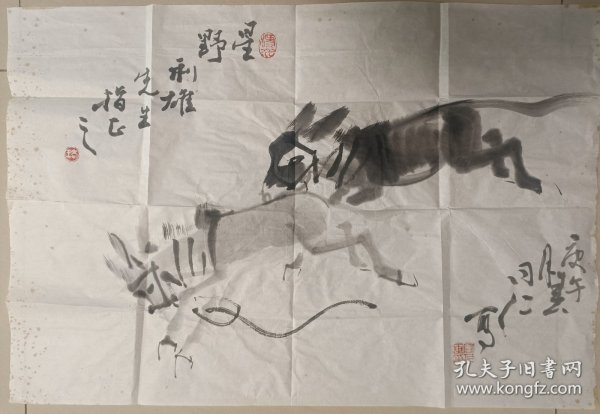 星野
利雄
先生
指正
之
庚午
同仁
写
孔夫子旧书网
www.kongfz.com